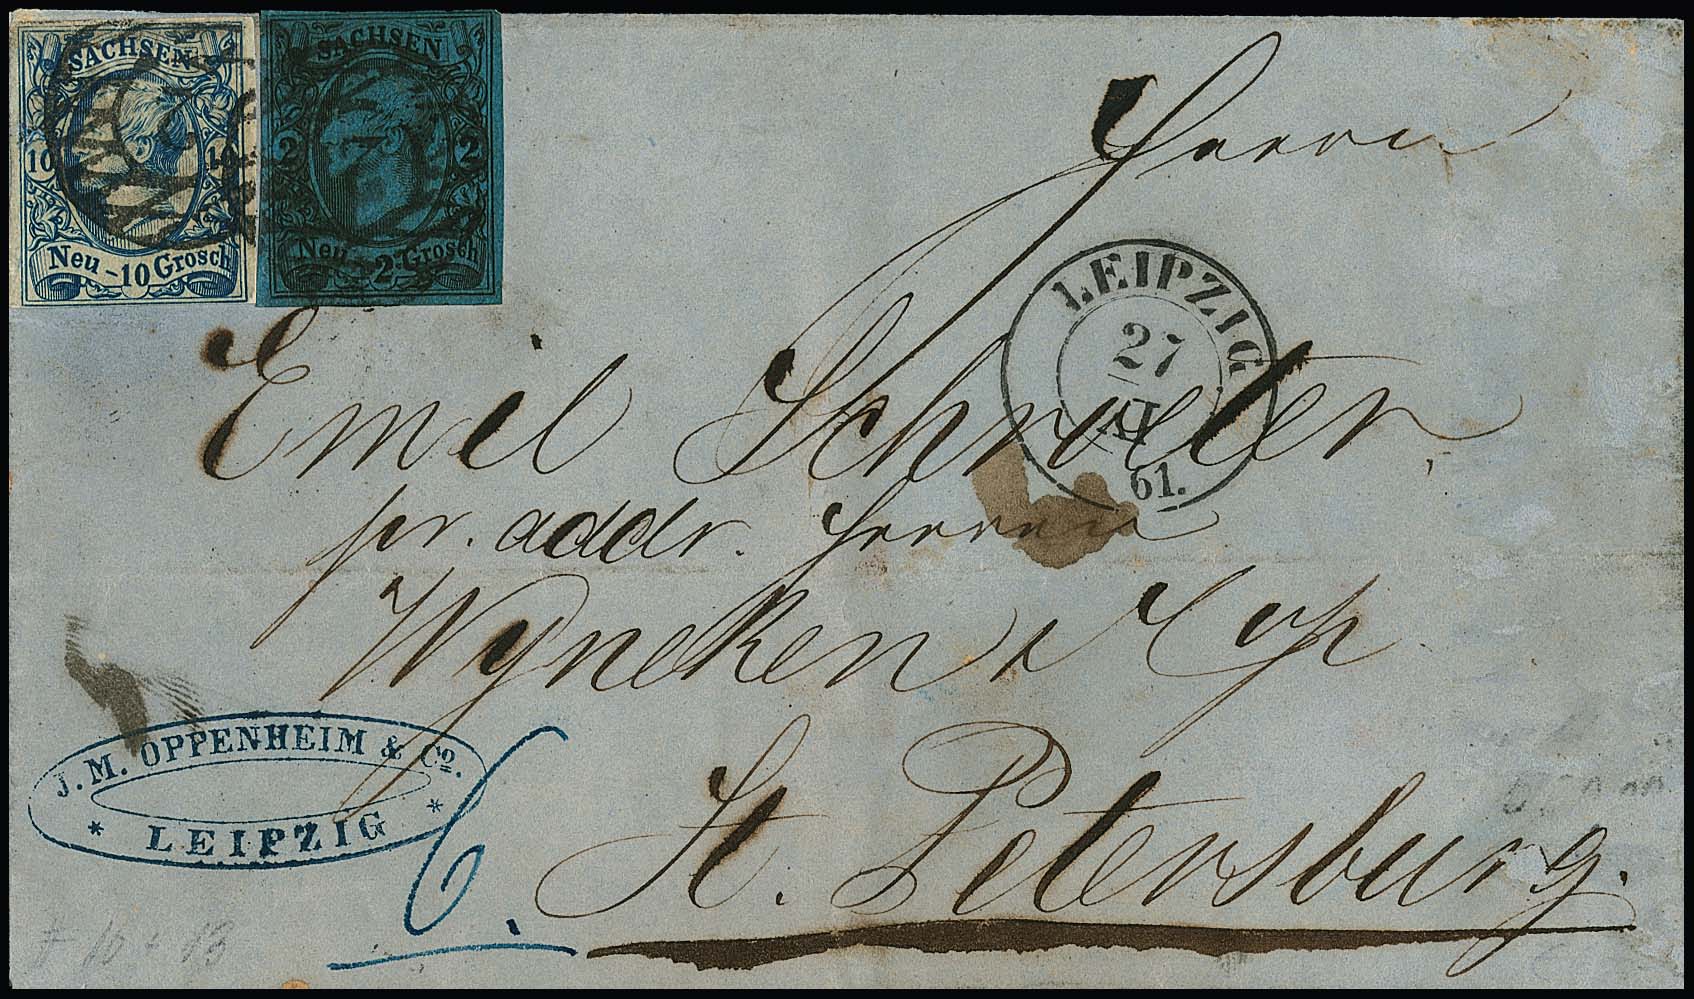 SACHSEN
10 10
Neu - 10 Grosch
SACHSEN
2 2
Neu - 2 Grosch
Herrn
LEIPZIG
27
XI
61.
Emil Schroeter
pr. addr. Herren
Wyneken & Cop
St. Petersburg.
J. M. OPPENHEIM & Co.
* LEIPZIG *
6